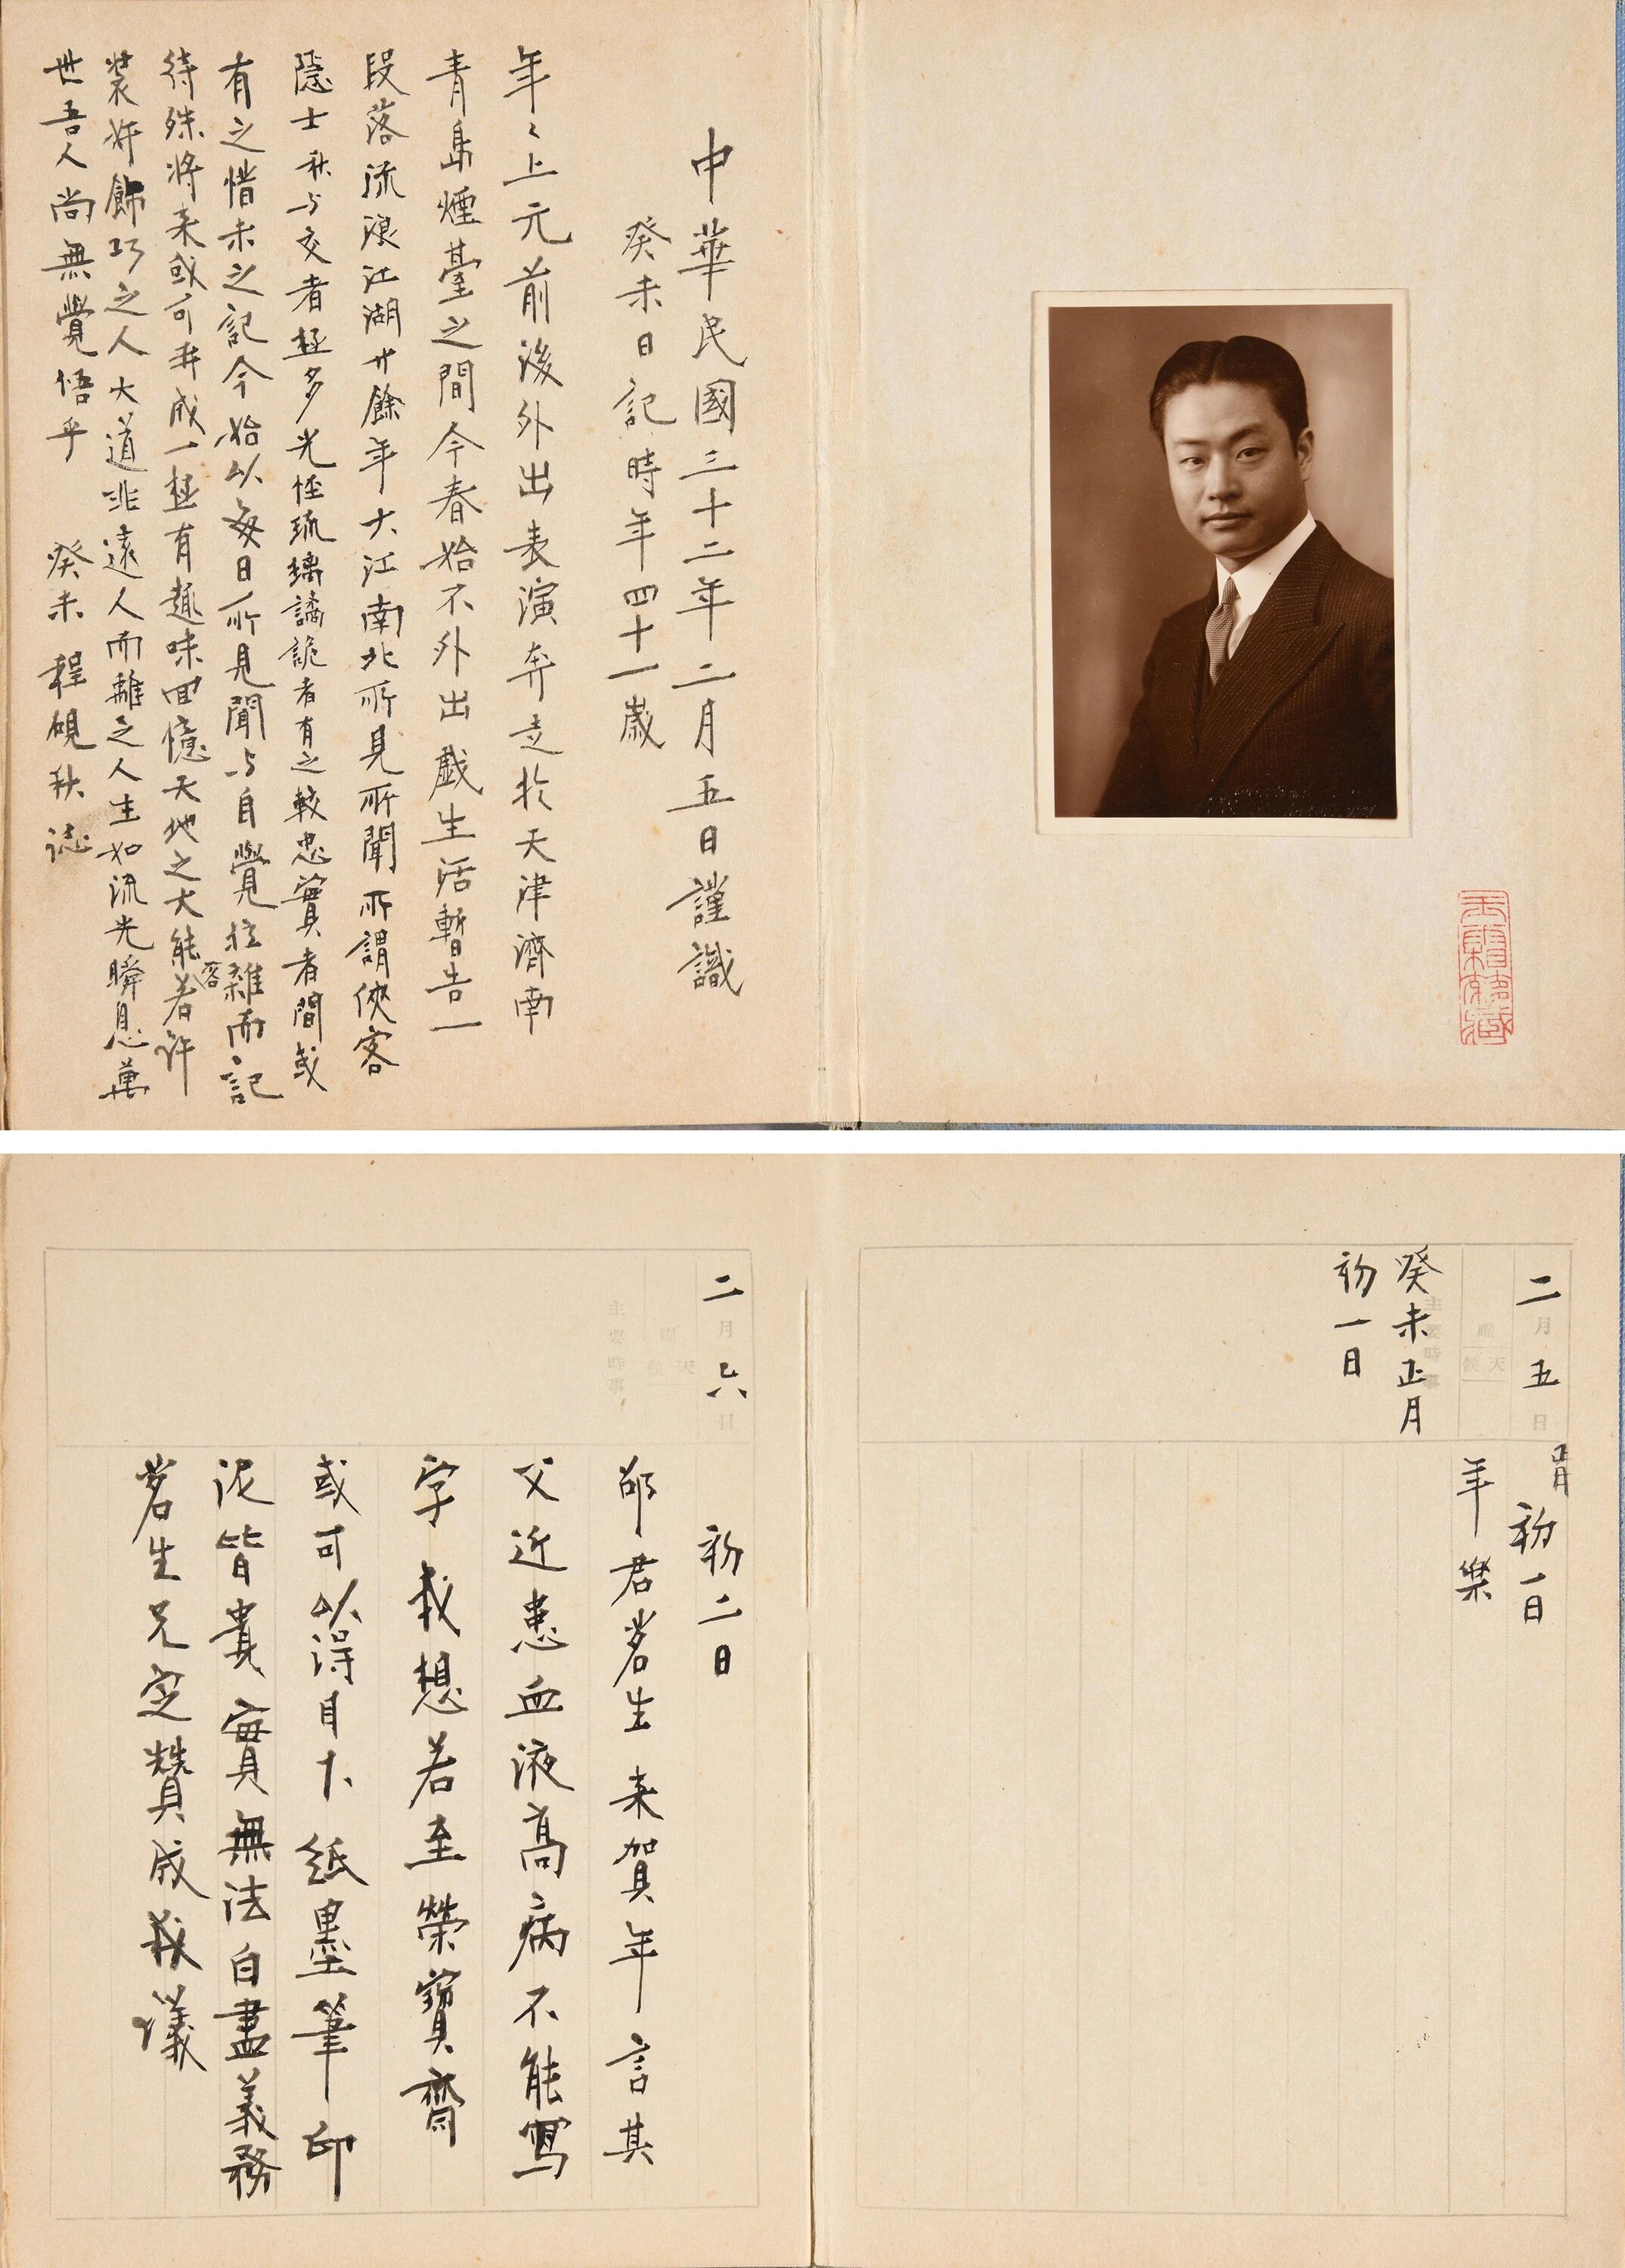 中華民國三十二年二月五日謹識
癸未日記時年四十一歲
年々上元前後外出表演奔走於天津濟南
青島煙臺之間今春始不外出戲生活暫告一
段落流浪江湖廿餘年大江南北所見所聞所謂俠客
隱士秋与交者極多光怪琉璃譎詭者有之較忠實者間或
有之惜未之記今始以每日所見聞与自覺拉雜而記
待殊將來或可弄成一極有趣味回憶天地之大能容若許
裝奸飾巧之人大道非遠人而離之人生如流光瞬息萬
世吾人尚無覺悟乎 癸未程硯秋誌
二月五日
正月初一日
天候
曜
年樂
主要時事
癸未正月
初一日
二月六日
初二日
天候
曜
主要時事
邵君茗生來賀年言其
父近患血液高病不能寫
字我想若至榮寶齋
或可以得目下紙墨筆印
泥皆貴實無法白盡義務
茗生兄定贊成我議